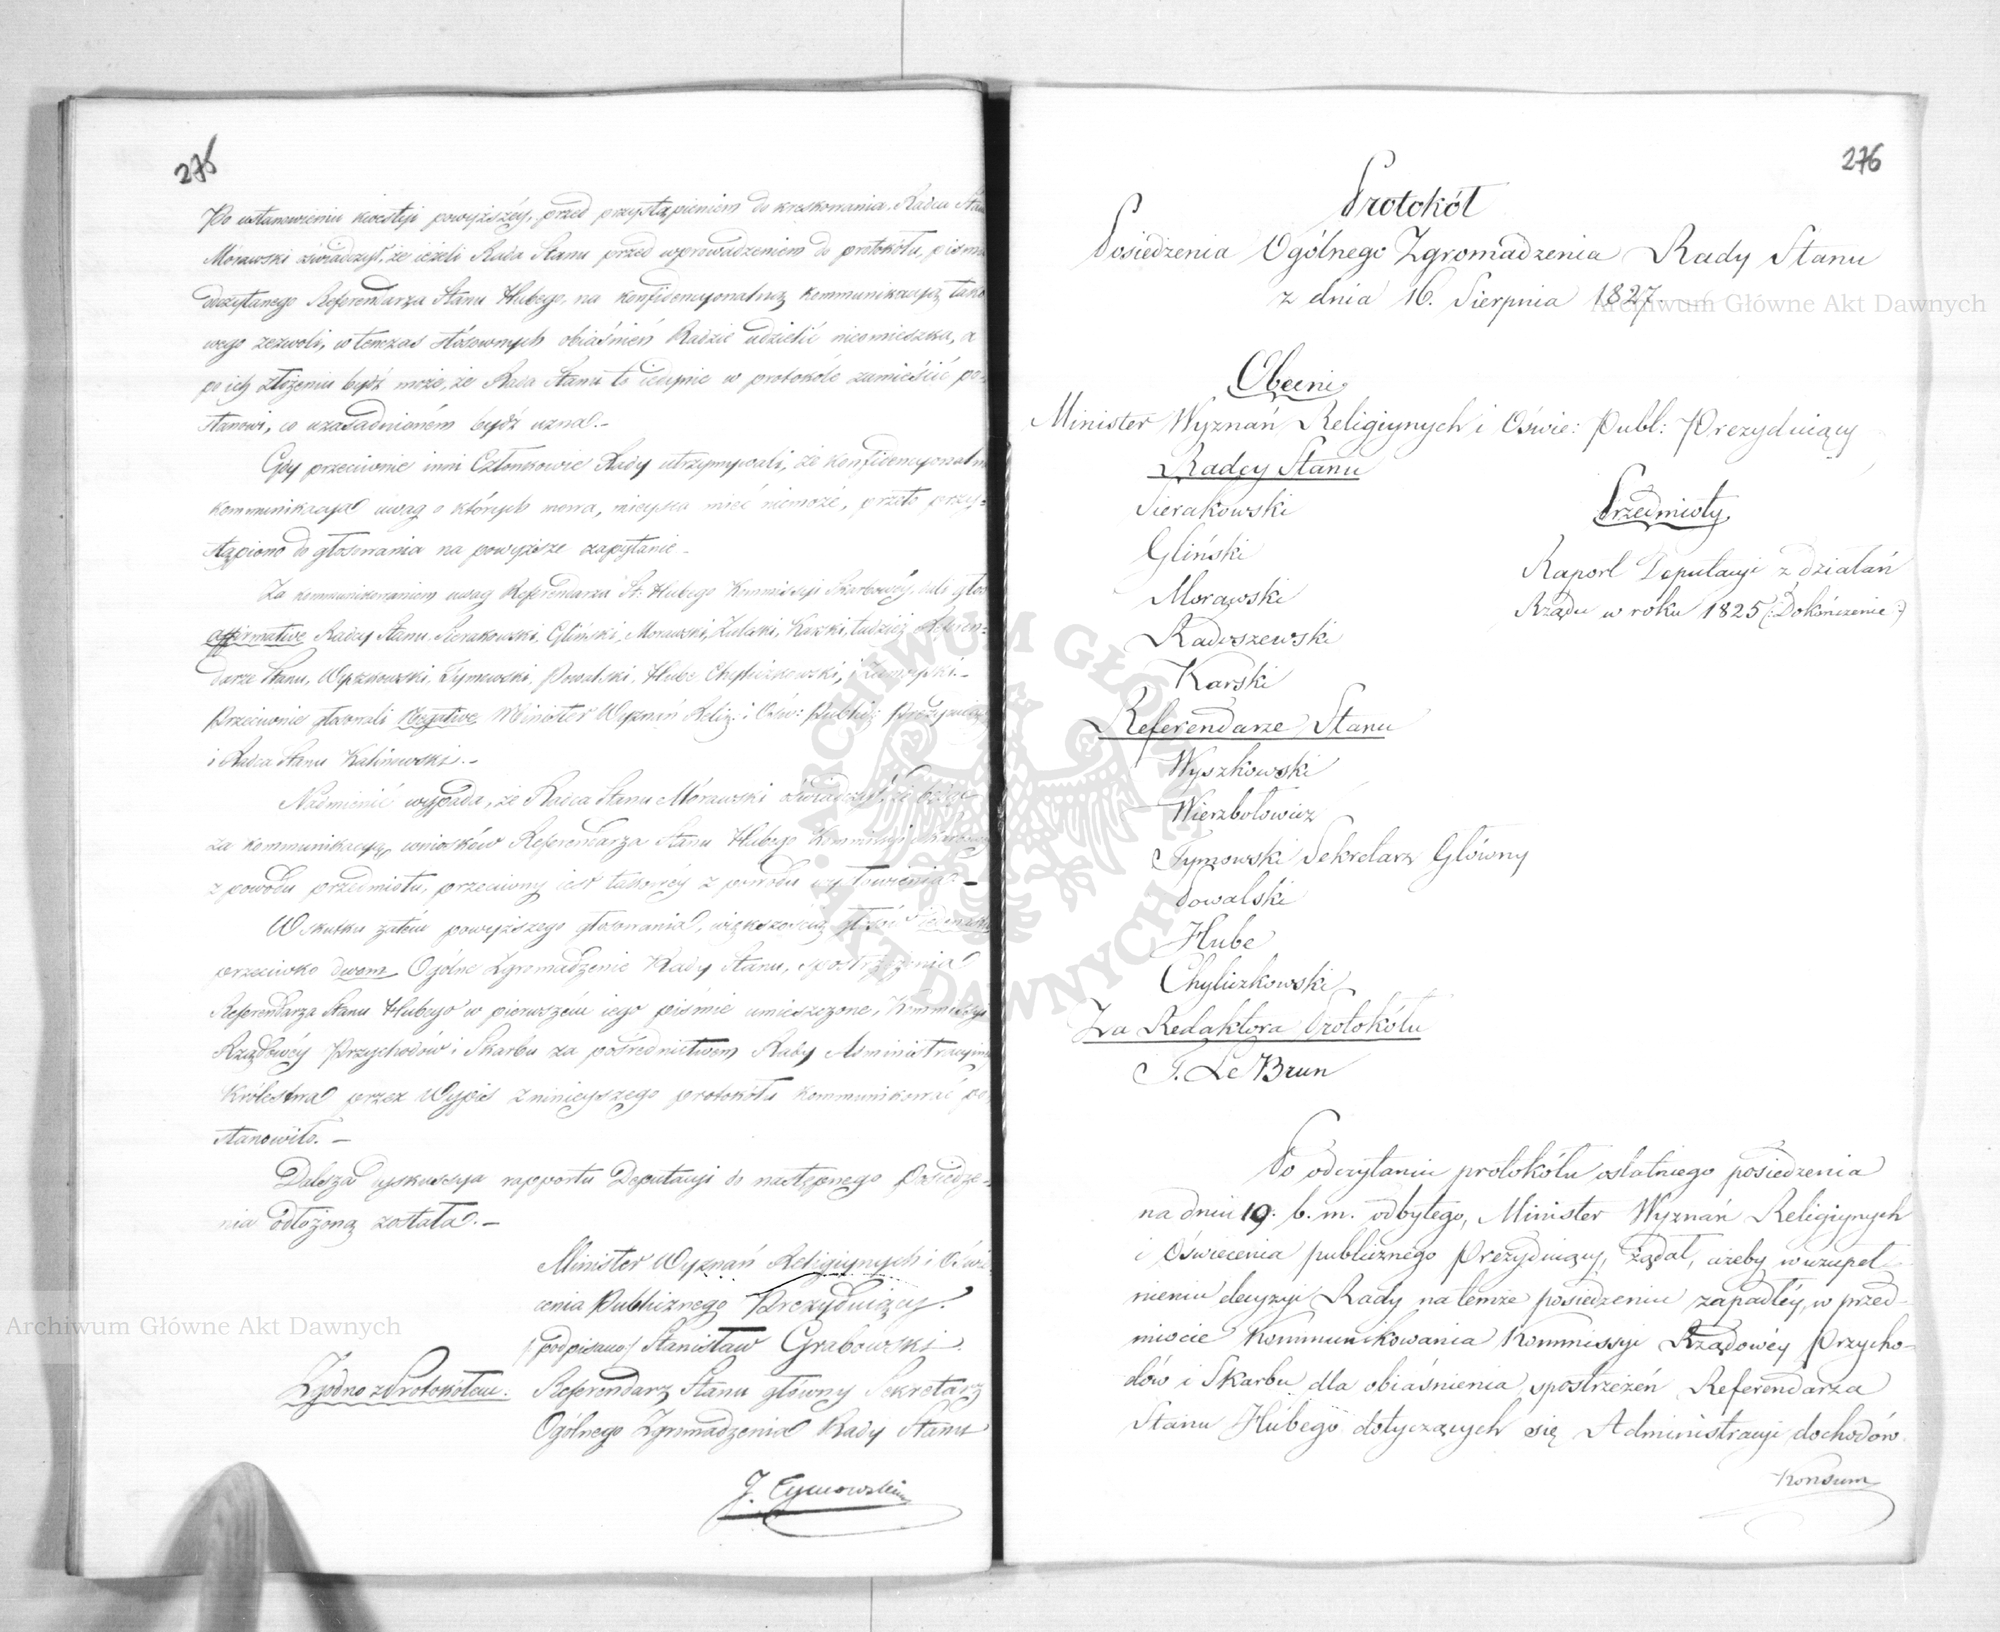 275
Po ustanowieniu kwestyi powyższéy, przed przystąpieniem do kreskowania, Radca Stanu
Morawski oświadczył, że ieżeli Rada Stanu przed wprowadzeniem do protokółu, pisma
doczytanego Referendarza Stanu Hubego, na konfidencyonalną kommunikacyą tako-
wego zezwoli, wtenczas stósownych obiaśnień Radzie udzielić nieomieszka, a
po ich złożeniu bydź może, że Rada Stanu to iedynie w protokóle zamieścić po-
stanowi, co uzasadnioném bydź uzna.-
Gdy przeciwnie inni Członkowie Rady utrzymywali, że konfidencyonalna
kommunikacya uwag o których mowa, mieysca mieć niemoże, przeto przy-
stąpiono do głosowania na powyższe zapytanie -
Za kommunikowaniem uwag Referendarza St: Hubego Kommissyi Skarbowéy, dali głos
affirmative Radcy Stanu, Sierakowski, Gliński, Morawski, Karski, tudzież Referen-
darze Stanu, Wyszkowski, Tymowski, Powalski, Hube Chyliczkowski, i
Przeciwnie głosowali Negative Minister Wyznań Relig: i Ośw: Publicz: Prezyduiący
i Radca Stanu Kalinowski.-
Nadmienić wypada, że Radca Stanu Morawski oświadczył, że będąc
za kommunikacyą wniosków Referendarza Stanu Hubego Kommissyi Skarbowéy
z powodu przedmiotu, przeciwny iest takowéy z powodu wysłowienia.-
W skutku zatém powyższego głosowania, większością głosów
przeciwko dwom Ogólne Zgromadzenie Rady Stanu, spostrzeżenia
Referendarza Stanu Hubego w pierwszém iego piśmie umieszczone, Kommissyi
Rządowéy Przychodów i Skarbu za pośrednictwem Rady Administracyinéy
Królestwa przez Wypis z ninieyszego protokółu kommunikować po-
stanowiło.-
Dalsza dyskussya rapportu Deputacyi do następnego Posiedze-
nia odłożoną została.-
Minister Wyznań Religiynych i Oświe-
cenia Publicznego Prezyduiący.
/podpisano/ Stanisław Grabowski.
Zgodno z Protokółem. Referendarz Stanu główny Sekretarz
Ogólnego Zgromadzenia Rady Stanu
J. Tymowski
276
Protokół
Posiedzenia Ogólnego Zgromadzenia Rady Stanu
z dnia 16. Sierpnia 1827.
Obecni
Minister Wyznań Religiynych i Oświe: Publ: Prezyduiący
Radcy Stanu
Sierakowski
Gliński
Morawski
Radoszewski
Karski
Przedmioty
Raport Deputacyi z działań
Rządu w roku 1825 (:Dokończenie:)
Referendarze Stanu
Wyszkowski
Wierzbołowicz
Tymowski Sekretarz Główny
Powalski
Hube
Chyliczkowski
Za Redaktora Protokółu
F. Le Brun
Po odczytaniu protokółu ostatniego posiedzenia
na dniu 19. b. m. odbytego, Minister Wyznań Religiynych
i Oświecenia publicznego Prezyduiący, żądał, ażeby w uzupeł-
nieniu decyzyi Rady na temże posiedzeniu zapadłéy, w przed-
miocie Kommunikowania Kommissyi Rządowéy Przycho-
dów i Skarbu dla obiaśnienia spostrzeżeń Referendarza
Stanu Hubego dotyczących się Administracyi dochodów
Konsum
Archiwum Główne Akt Dawnych
Archiwum Główne Akt Dawnych
ARCHIWUM GŁÓWNE AKT DAWNYCH